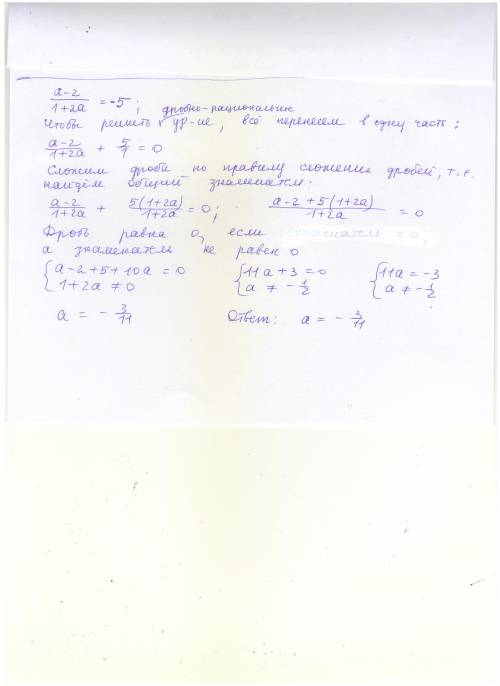 a-2/1+2a = -5; дробно-рациональне
Чтобы решить ур-ие, всё перенесем в одну часть:
a-2/1+2a + 5/1 = 0
Сложим дроби по правилу сложения дробей, т.е.
найдём общий знаменатель.
a-2/1+2a + 5(1+2a)/1+2a = 0; a-2+5(1+2a)/1+2a = 0
Дробь равна 0, если = 0,
а знаменатель не равен 0
{a-2+5+10a = 0 {11a+3 = 0 {11a = -3
{1+2a ≠ 0 {a ≠ -1/2 {a ≠ -1/2
a = -3/11 Ответ: a = -3/11